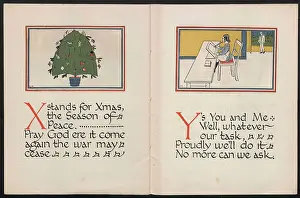 X stands for Xmas,
the Season of
Peace.
Pray God ere it come
again the war may
cease.
Y's You and Me
Well, whatever
our task,
Proudly we'll do it
No more can we ask.